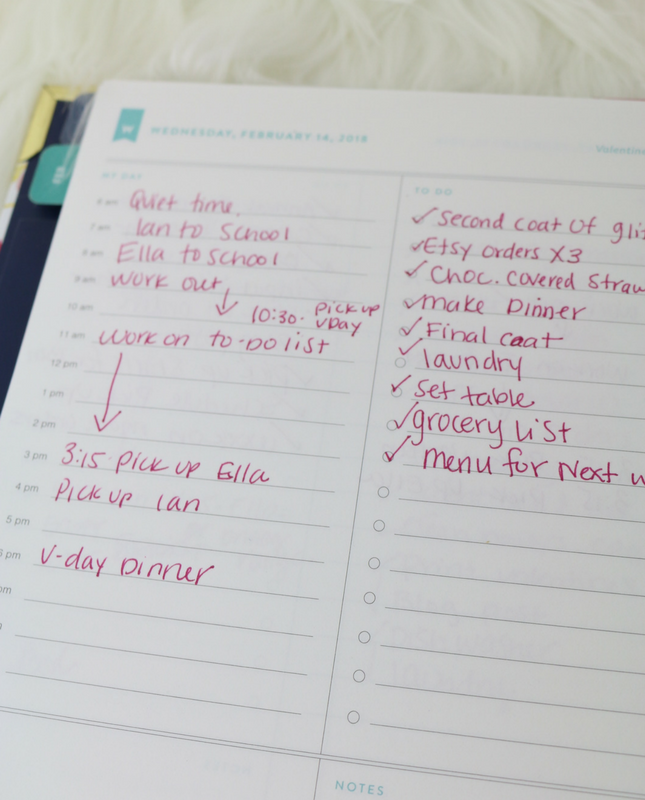 W
WEDNESDAY, FEBRUARY 14, 2018
Valentine
MY DAY
6 am Quiet time.
7 am Ian to school
8 am Ella to school
9 am work out
10 am 10:30. Pick up
VDay
11 am work on to-do list
12 pm
1 pm
2 pm
3 pm 3:15 Pick up Ella
4 pm Pick up Ian
5 pm
pm V-day Dinner
pm
TO DO
second coat of gli
Etsy orders x3
choc. covered straw
make Dinner
Final coat
laundry
set table
grocery list
menu for Next w
NOTES